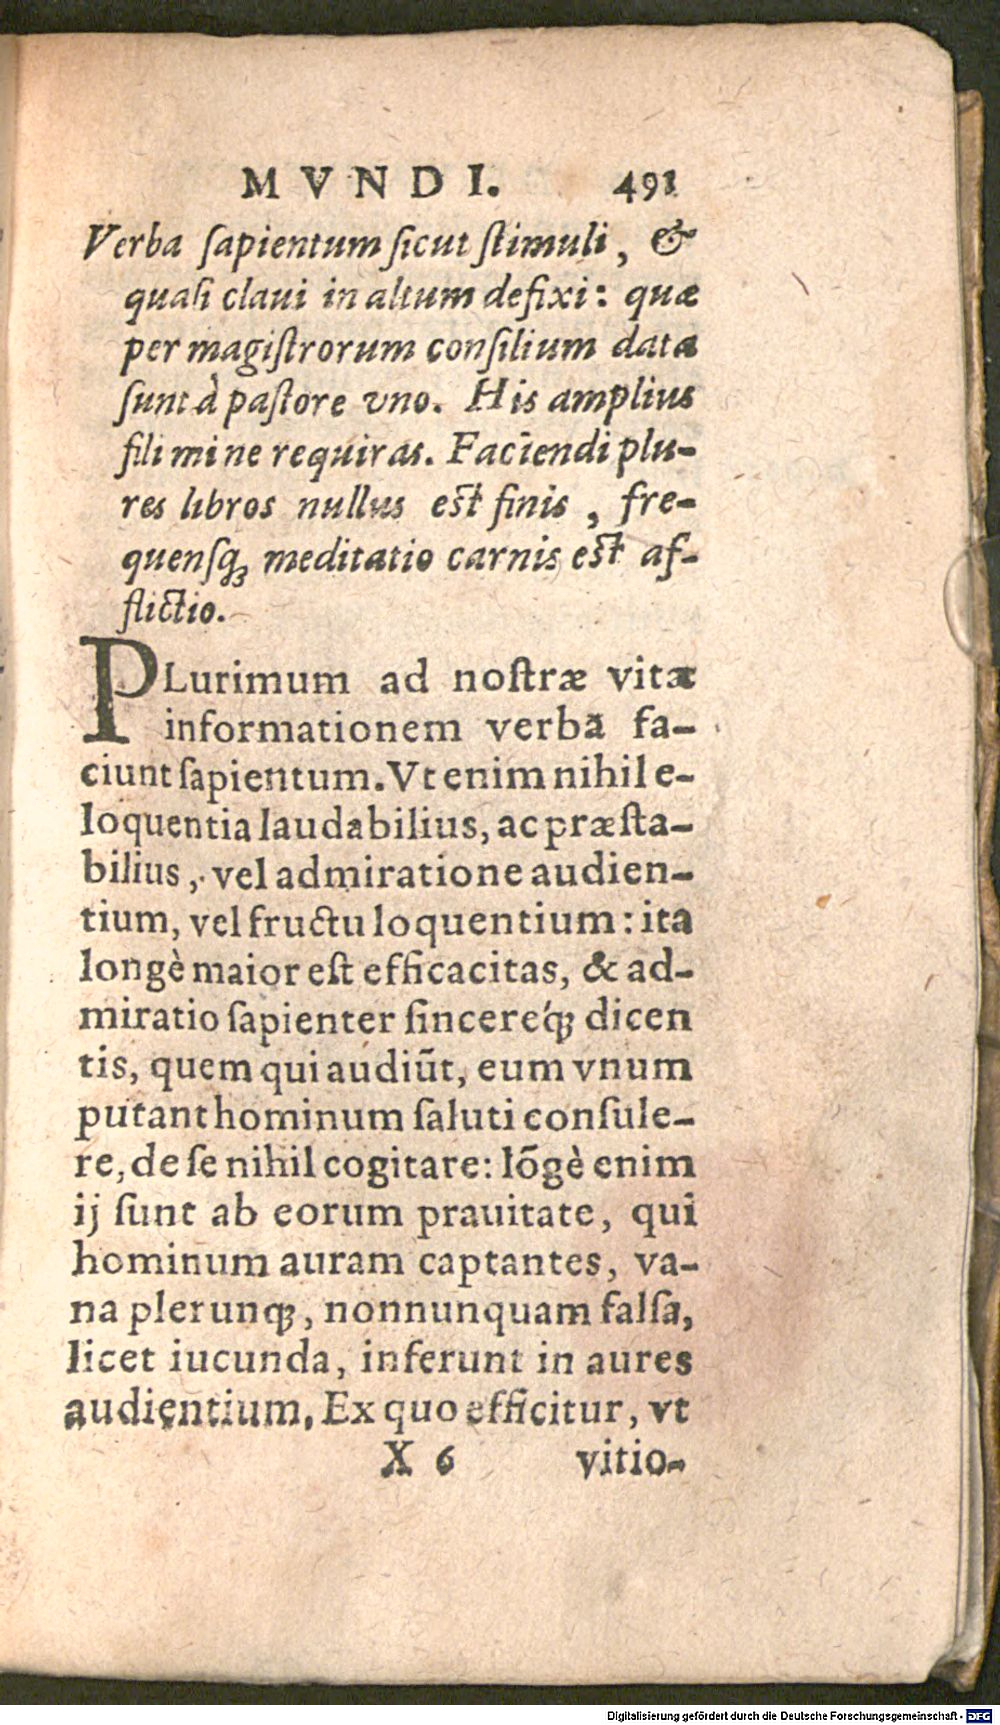 MVNDI. 491
Verba ſapientum ſicut ſtimuli, &
quaſi claui in altum defixi: quæ
per magiſtrorum conſilium data
ſunt à paſtore vno. His amplius
fili mi ne requiras. Faciendi plu-
res libros nullus eſt finis, fre-
quenſq́; meditatio carnis eſt af-
flictio.
PLurimum ad noſtræ vitæ
informationem verba fa-
ciunt ſapientum. Vt enim nihil e-
loquentia laudabilius, ac præſta-
bilius, vel admiratione audien-
tium, vel fructu loquentium: ita
longè maior eſt efficacitas, & ad-
miratio ſapienter ſincereq́; dicen
tis, quem qui audiũt, eum vnum
putant hominum ſaluti conſule-
re, de ſe nihil cogitare: lõgè enim
ij ſunt ab eorum prauitate, qui
hominum auram captantes, va-
na plerunq;, nonnunquam falſa,
licet iucunda, inferunt in aures
audientium. Ex quo efficitur, vt
X 6 vitio-
Digitalisierung gefördert durch die Deutsche Forschungsgemeinschaft - DFG